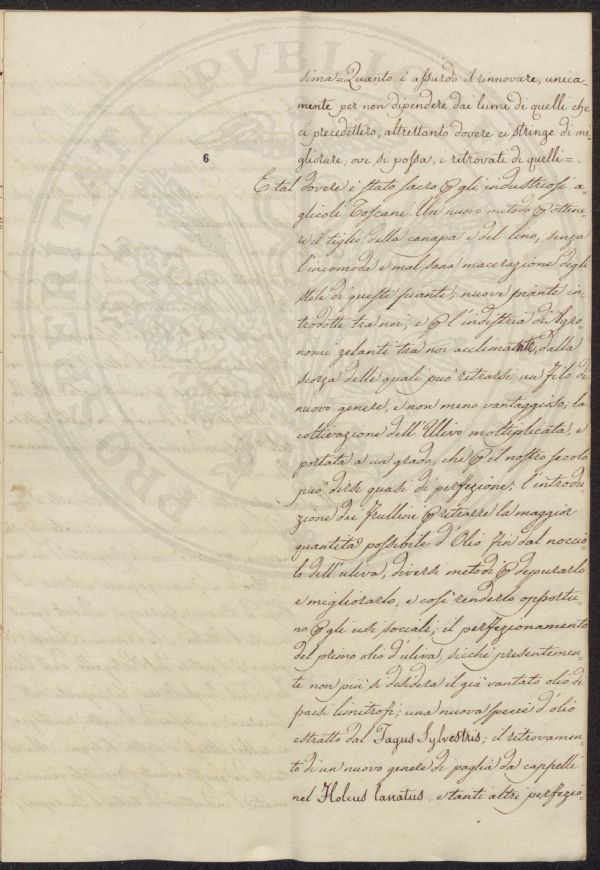 sima = Quanto è assurdo il rinnovare, unica-
mente per non dipendere dai lumi di quelli che
ci precedettero, altrettanto dovere ci stringe di me-
gliorare, ove si possa, i ritrovati di quelli =.
6
E tal dovere è stato sacro per gli industriosi a-
gricoli Toscani. Un nuovo metodo per ottene-
re il tiglio della canapa e del lino, senza
l'incomoda e mal sana macerazione degli
steli di queste piante; nuove piante in-
trodotte tra noi, e per l'industria di Agro-
nomi zelanti tra noi acclimatate, dalla
scorza delle quali può retrarsi un filo di
nuovo genere, e non meno vantaggioso; la
coltivazione dell'Ulivo moltiplicata, e
portata a un grado, che per il nostro secolo
può dirsi quasi di perfezione; l'introdu-
zione dei Frullini per retrarre la maggior
quantità possibile d'Olio fin dal noccio-
lo dell'uliva, diversi metodi per depurarlo
e migliorarlo, e così renderlo opportu-
no per gli usi sociali; il perfezionamento
del primo olio d'uliva, sicchè presentemen-
te non più si desidera il già vantato olio di
paesi limitrofi; una nuova specie d'olio
estratto dal Fagus Sylvestris; il retrovamen-
to di un nuovo genere di paglia da cappelli
nel Holcus lanatus, e tanti altri perfezio-